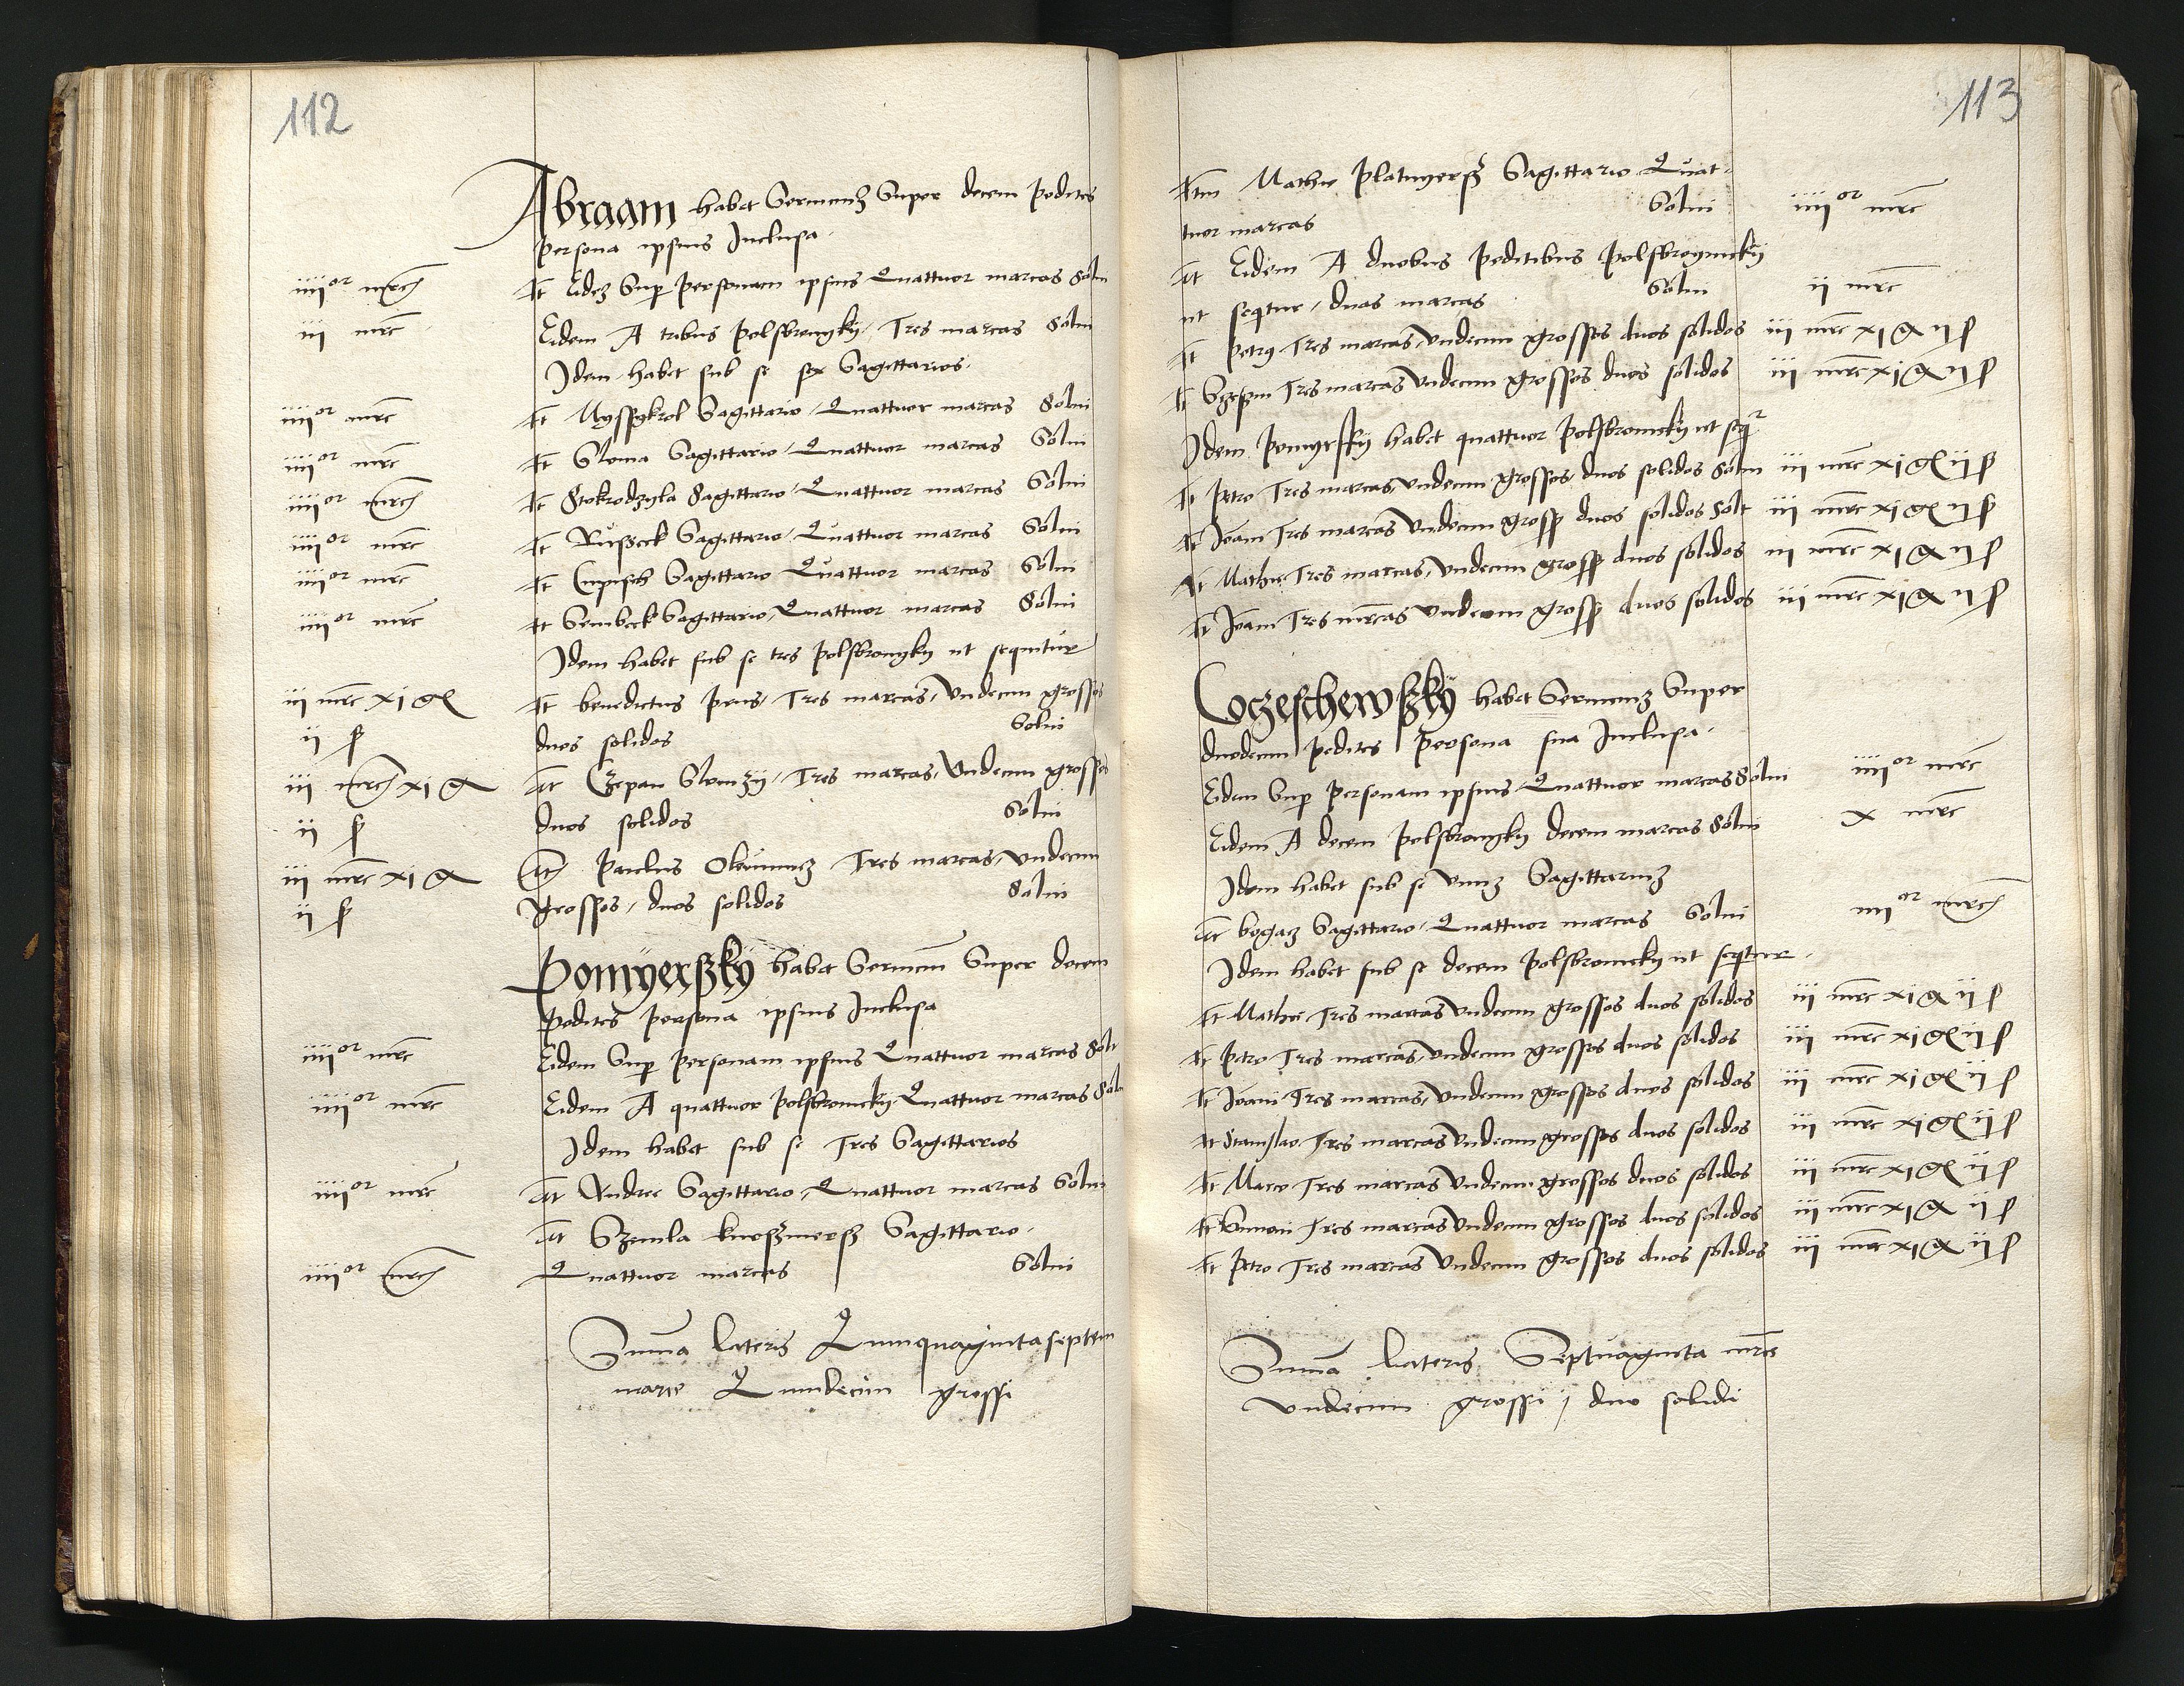 112
Abraam habet Servicium Super decem pedites
persona ipsius Inclusa
iiii or mrc It Eidem Sup personam ipsius Quattuor marcas Solui
iii mrc Eidem A tribus polsbronyky Tres marcas Solui
Idem habet sub se sex Sagittarios
iiii or mrc It Myssykrol Sagittario Quattuor marcas Solui
iiii or mrc It Sloma Sagittario Quattuor marcas Solui
iiii or mrc It Stokrodzyla Sagittario Quattuor marcas Solui
iiii or mrc It Russeck Sagittario Quattuor marcas Solui
iiii or mrc It Cupisch Sagittario Quattuor marcas Solui
iiii or mrc It Sembeck Sagittario Quattuor marcas Solui
Idem habet sub se tres polsbronyky ut sequitur
iii mrc xi g It benedictus Tres marcas Undecim grossos
ii s duos solidos Solui
iii mrc xi g It Czepan Slomzy Tres marcas Undecim grossos
ii s duos solidos Solui
iii mrc xi g It Paulus Tres marcas undecim
ii s grossos duos solidos Solui
Pomyerszky habet Servicium Super decem
pedites persona ipsius Inclusa
iiii or mrc Eidem Sup personam ipsius Quattuor marcas Solui
iiii or mrc Eidem A quattuor polsbronicky Quattuor marcas Solui
Idem habet sub se Tres Sagittarios
iiii or mrc It Andree Sagittario Quattuor marcas Solui
It Szemla Sagittario
iiii or mrc Quattuor marcas Solui
Summa lateris Quinquaginta septem
marce Quindecim grossi
113
Itm Mathie Sagittario Quat-
tuor marcas Solui iiii or mrc
It Eidem A duobus peditibus
ut seqtur duas marcas Solui ii mrc
It petrus Tres marcas undecim grossos duos solidos iii mrc xi g ii s
It Tres marcas Undecim grossos duos solidos iii mrc xi g ii s
Idem pomyrsky habet quattuor polsbronicky ut seqr
It petro Tres marcas undecim grossos duos solidos Solui iii mrc xi g ii s
It Joani Tres marcas Undecim gross duos solidos Solt iii mrc xi g ii s
It Mathie Tres marcas Undecim gross duos solidos iii mrc xi g ii s
It Joani Tres mrcas Undecim gross duos solidos iii mrc xi g ii s
Coczeschewszky habet Servicium Super
duodecim pedites persona sua Inclusa
Eidem Sup personam ipsius Quattuor marcas Solui iiii or mrc
Eidem A decem polsbronyky decem marcas Solui x mrc
Idem habet sub se unum Sagittarium
It bogacz Sagittario Quattuor marcas Solui iiii or mrc
Idem habet sub se decem polsbronicky ut seqtur
It Mathie Tres marcas Undecim grossos duos solidos iii mrc xi g ii s
It petro Tres marcas undecim grossos duos solidos iii mrc xi g ii s
It Joani Tres marcas Undecim grossos duos solidos iii mrc xi g ii s
It Stanislao Tres marcas Undecim grossos duos solidos iii mrc xi g ii s
It Marco Tres marcas Undecim grossos duos solidos iii mrc xi g ii s
It Simoni Tres marcas Undecim grossos duos solidos iii mrc xi g ii s
It petro Tres marcas Undecim grossos duos solidos iii mrc xi g ii s
Summa lateris Septuaginta mrce
undecim grossi duo solidi